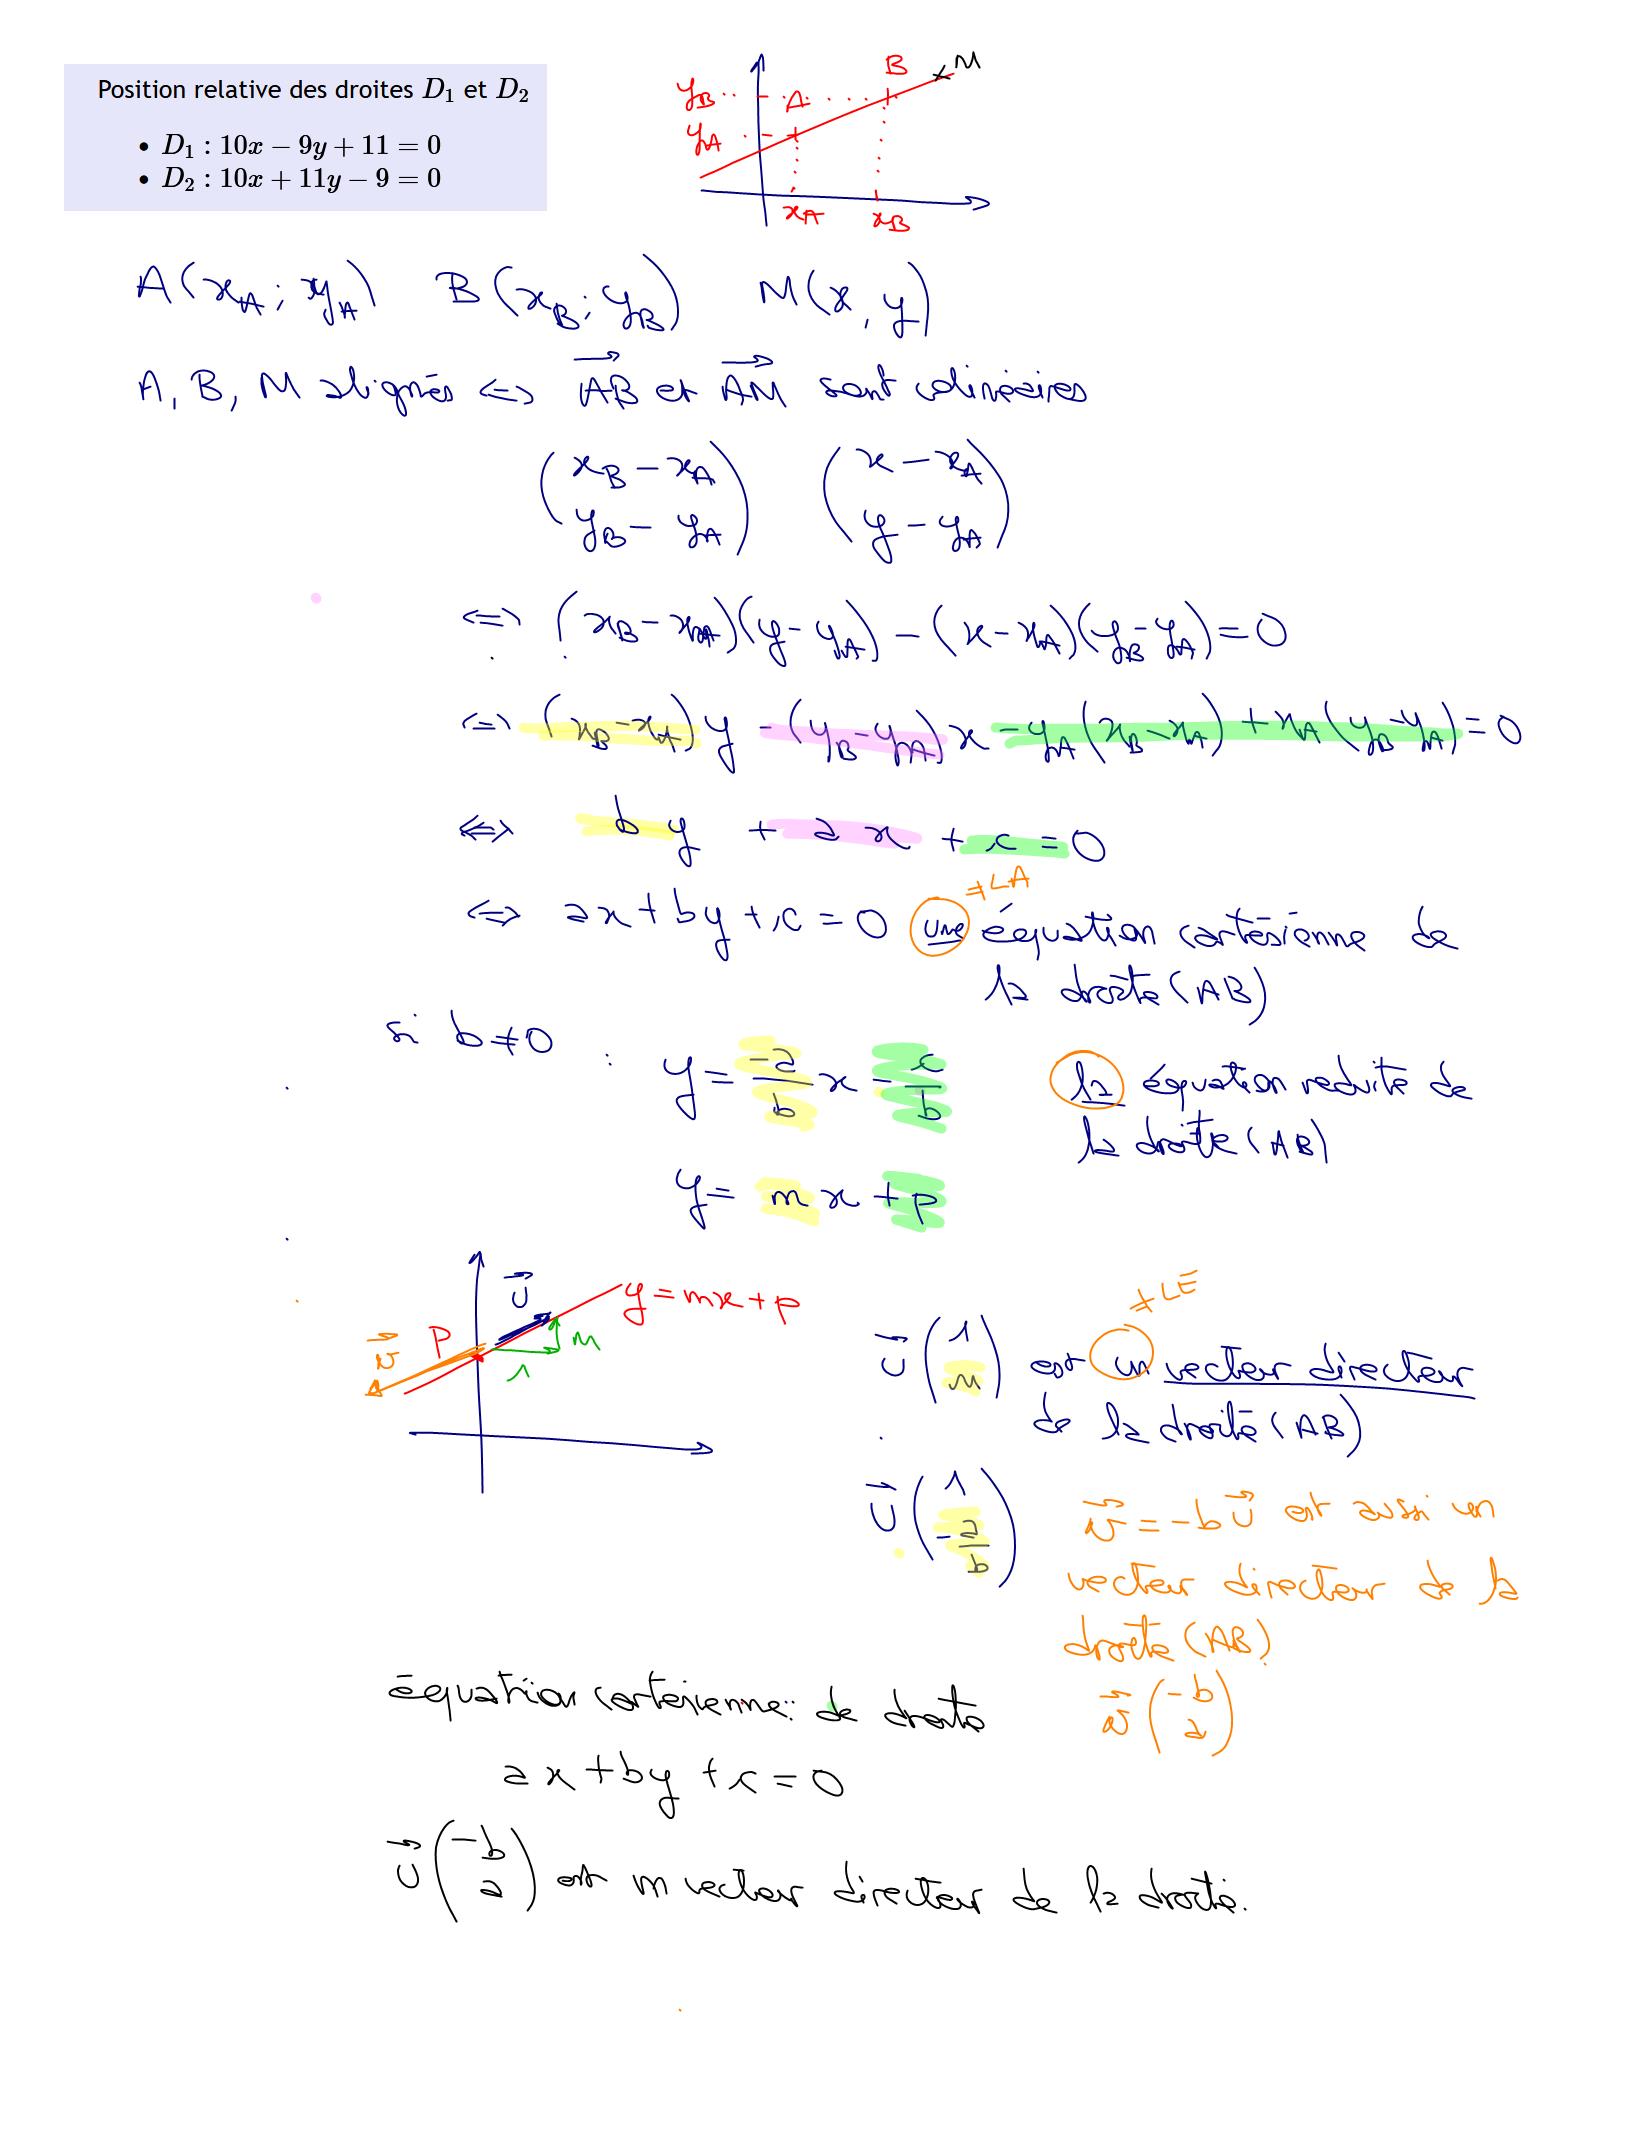 Position relative des droites D₁ et D₂
• D₁ : 10x − 9y + 11 = 0
• D₂ : 10x + 11y − 9 = 0
y_B A B M
y_A
x_A x_B
A(x_A ; y_A) B(x_B ; y_B) M(x, y)
A, B, M alignés ⇔ →AB et →AM sont colinéaires
(x_B − x_A ; y_B − y_A) (x − x_A ; y − y_A)
⇔ (x_B − x_A)(y − y_A) − (x − x_A)(y_B − y_A) = 0
⇔ (x_B − x_A) y − (y_B − y_A) x − y_A (x_B − x_A) + x_A (y_B − y_A) = 0
⇔ b y + a x + c = 0
≠ LA
⇔ ax + by + c = 0 une équation cartésienne de
la droite (AB)
si b ≠ 0 : y = −a/b x − c/b la équation reduite de
la droite (AB)
y = m x + p
→u y = mx + p
→v P 1 m
≠ LE
→u (1 ; m) est un vecteur directeur
de la droite (AB)
→u (1 ; −a/b) →v = −b →u est aussi un
vecteur directeur de la
droite (AB)
→v (−b ; a)
équation cartésienne : de droite
ax + by + c = 0
→u (−b ; a) est un vecteur directeur de la droite.